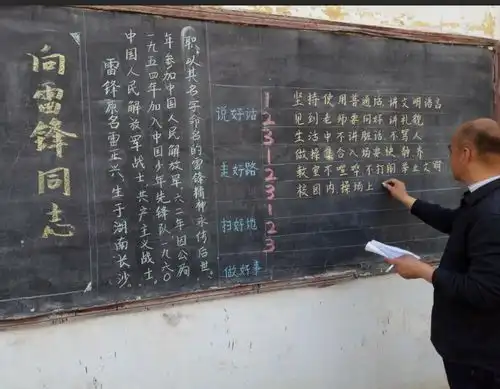 向雷锋同志
雷锋原名雷正兴,生于湖南长沙.
中国人民解放军战士,共产主义战士.
一九五四年加入中国少年先锋队,一九六〇
年参加中国人民解放军,六二年因公殉
职,以其名字命名的雷锋精神永传后世.
说好话
1 坚持使用普通话,讲文明语言
2 见到老师要问好,讲礼貌
3 生活中不讲脏话,不骂人
走好路
1 做操集合入场要快、静、齐
2 教室不喧哗不打闹 举止文明
3 校园内、操场上
扫好地
1
2
3
做好事